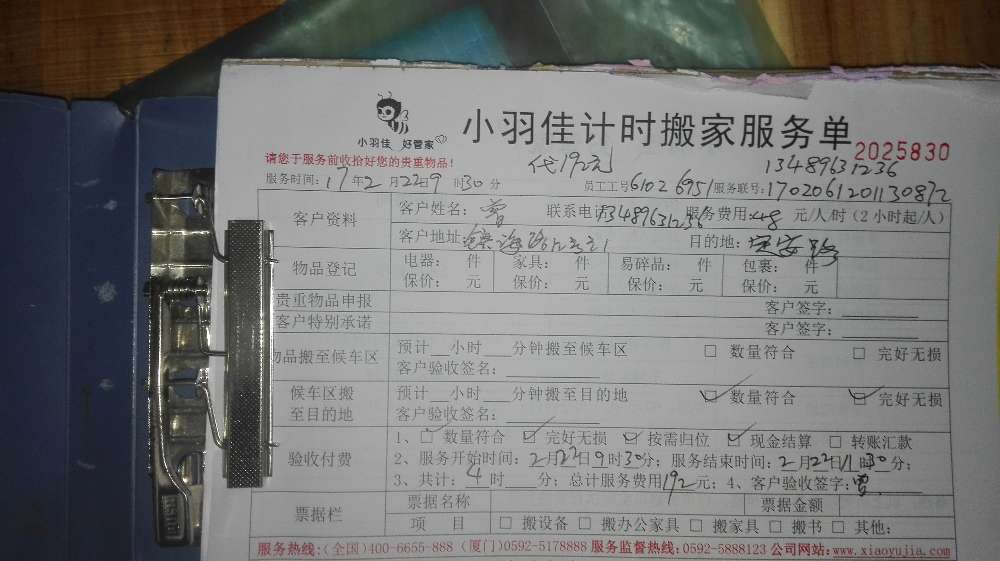 小羽佳 好管家
小羽佳计时搬家服务单
2025830
请您于服务前收拾好您的贵重物品!
代192元
13489631236
服务时间: 17年2月22日9时30分 员工工号6102 6951 服务联号:1702061201130892
客户资料
客户姓名: 曾 联系电话13489631236 服务费用:48 元/人/时 (2小时起/人)
客户地址: 镇海路 目的地: 路
物品登记
电器: 件 家具: 件 易碎品: 件 包裹: 件
保价: 元 保价: 元 保价: 元 保价: 元
贵重物品申报 客户签字:
客户特别承诺 客户签字:
物品搬至候车区
预计__小时___分钟搬至候车区 □ 数量符合 □ 完好无损
客户验收签名:
候车区搬
至目的地
预计__小时___分钟搬至目的地 ☑ 数量符合 ☑ 完好无损
客户验收签名:
验收付费
1、☑ 数量符合 ☑ 完好无损 ☑ 按需归位 ☑ 现金结算 □ 转账汇款
2、服务开始时间: 2月22日9时30分; 服务结束时间: 2月22日11时30分;
3、共计: 4时___分; 总计服务费用192元; 4、客户验收签字: 曾
票据栏
票据名称 票据金额
项 目 □ 搬设备 □ 搬办公家具 □ 搬家具 □ 搬书 □ 其他:
服务热线:(全国)400-6655-888 (厦门)0592-5178888 服务监督热线:0592-5888123 公司网站:www.xiaoyujia.com